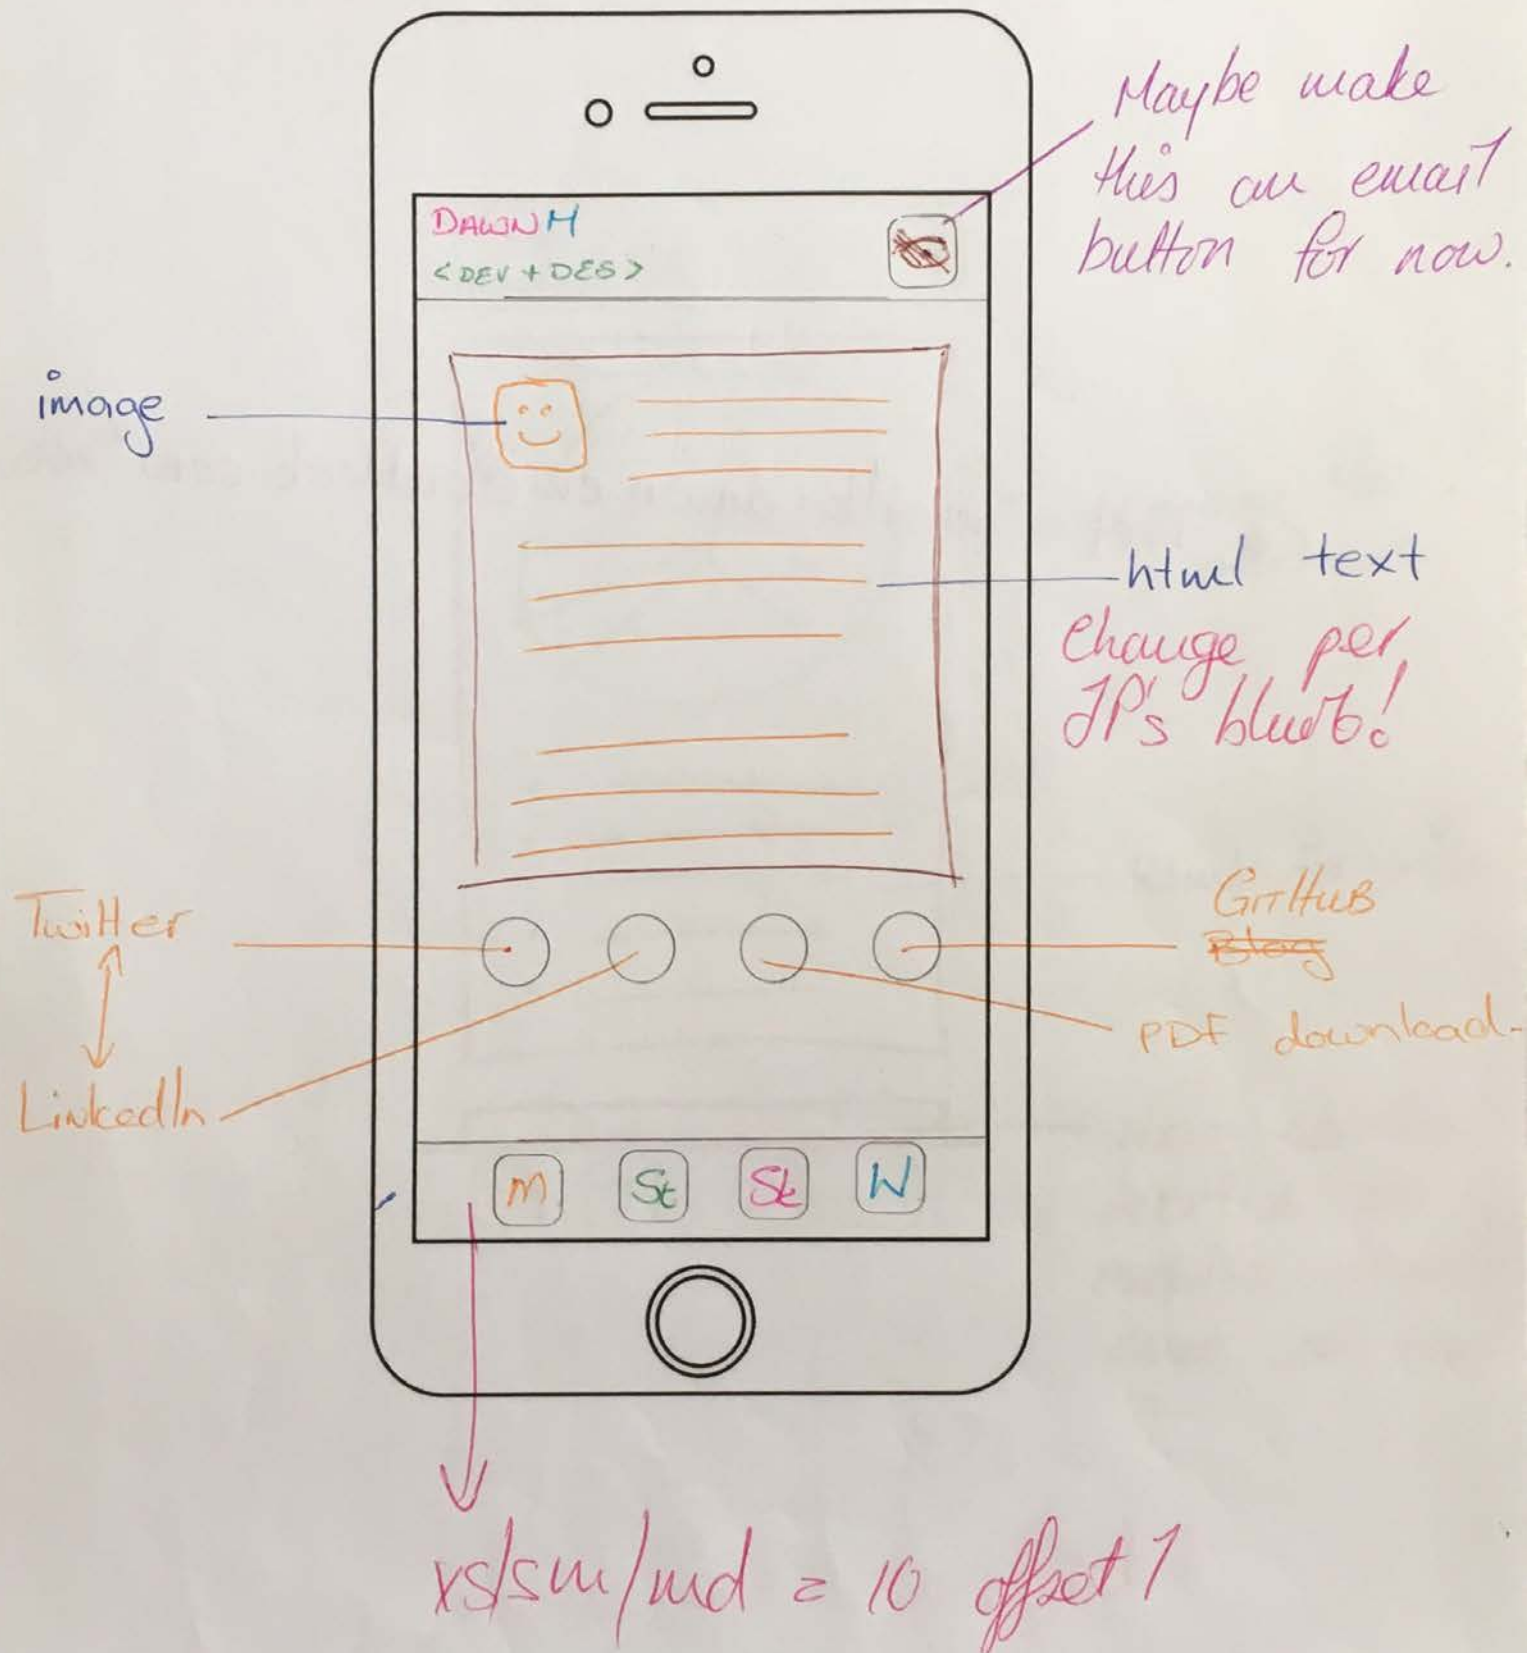 Maybe make
this an email
button for now.
DAWN M
<DEV + DES>
image
html text
Change per
JP's blurb!
Twitter
LinkedIn
GITHUB
Blog
PDF download.
M
St
Sk
W
xs/sm/md = 10 offset 1